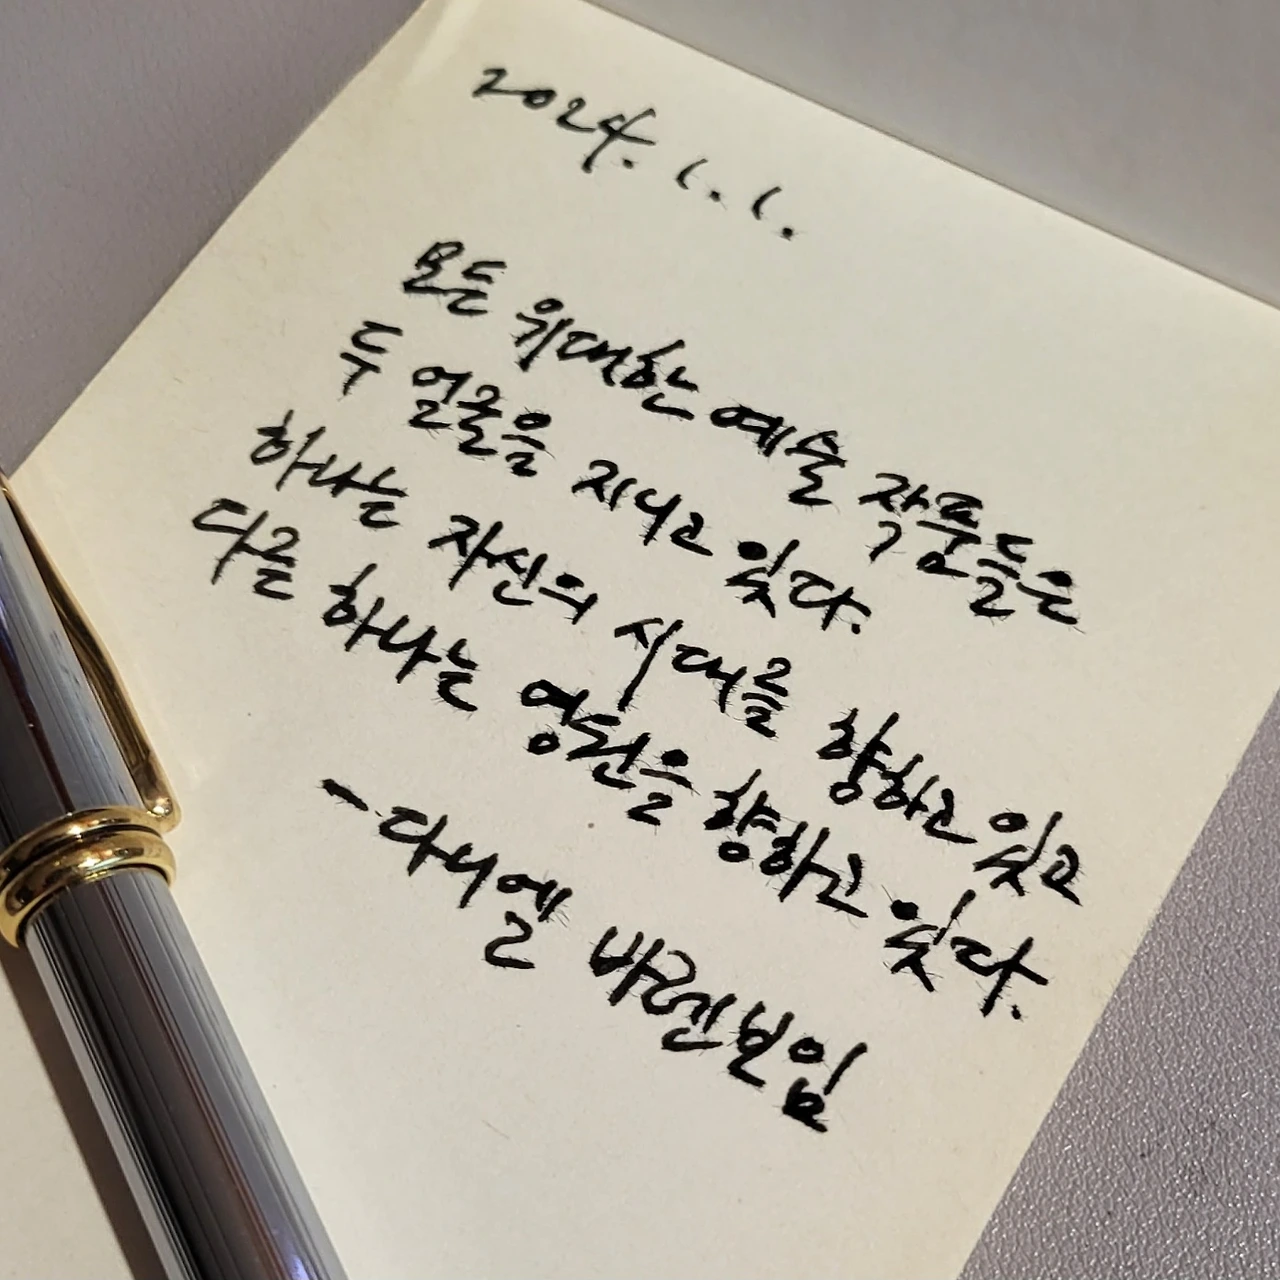 2024. 1. 1.
모든 위대한 예술 작품들은
두 얼굴을 지니고 있다.
하나는 자신의 시대를 향하고 있고
다른 하나는 영원을 향하고 있다.
- 다니엘 바렌보임